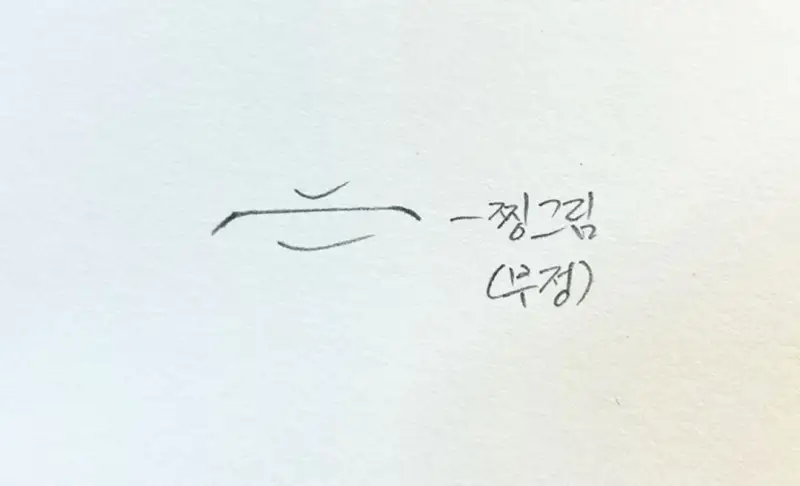 -찡그림
(부정)